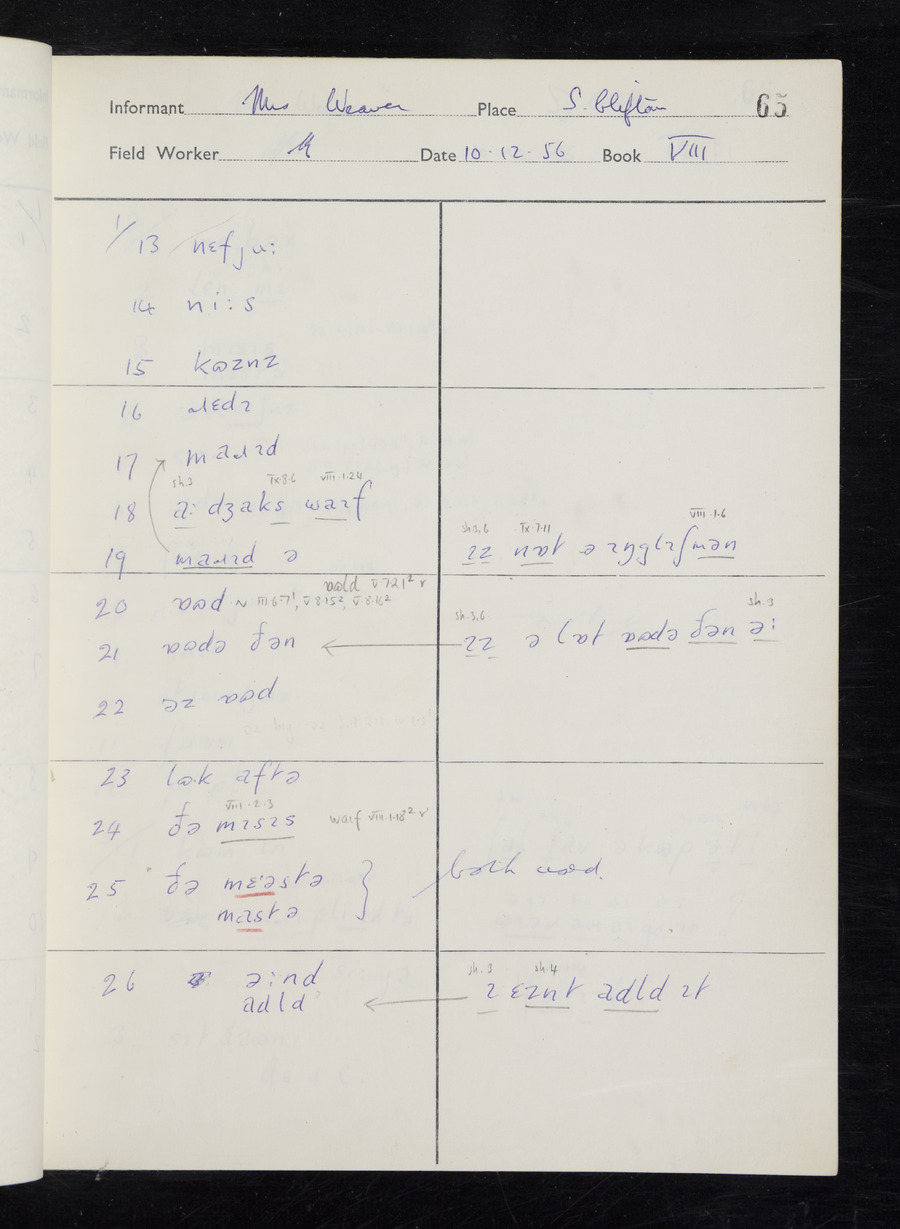 65
Informant Mrs Weaver Place S. Clifton
Field Worker Date 10·12·56 Book VIII
1/13 nɛfju:
14 ni:s
15 kʊznz
16 ɹɛdɪ
17 maɹɪd
sh.3 IX·8·6 VIII·1·24
18 a: dʒaks waɪf
sh.3,6 IX·7·11 VIII·1·6
19 maɹɪd ə ɪz nɒt ə ɪŋglɪʃmən
ɒʊld V·7·21² r
20 ɒʊd ~ III·6·7¹, V·8·15², V·8·16²
sh.3,6 sh.3
21 ɒʊdə ðən ɪz ə lɒt ɒʊdə ðən ə:
22 əz ɒʊd
23 lʊk aftə
VIII·2·3
24 ðə mɪsɪs waɪf VIII·1·18² r
25 ðə mɛ:əstə
mastə both used.
sh.3 sh.4
26 ə:nd ɪ ɛznt adld ɪt
adld